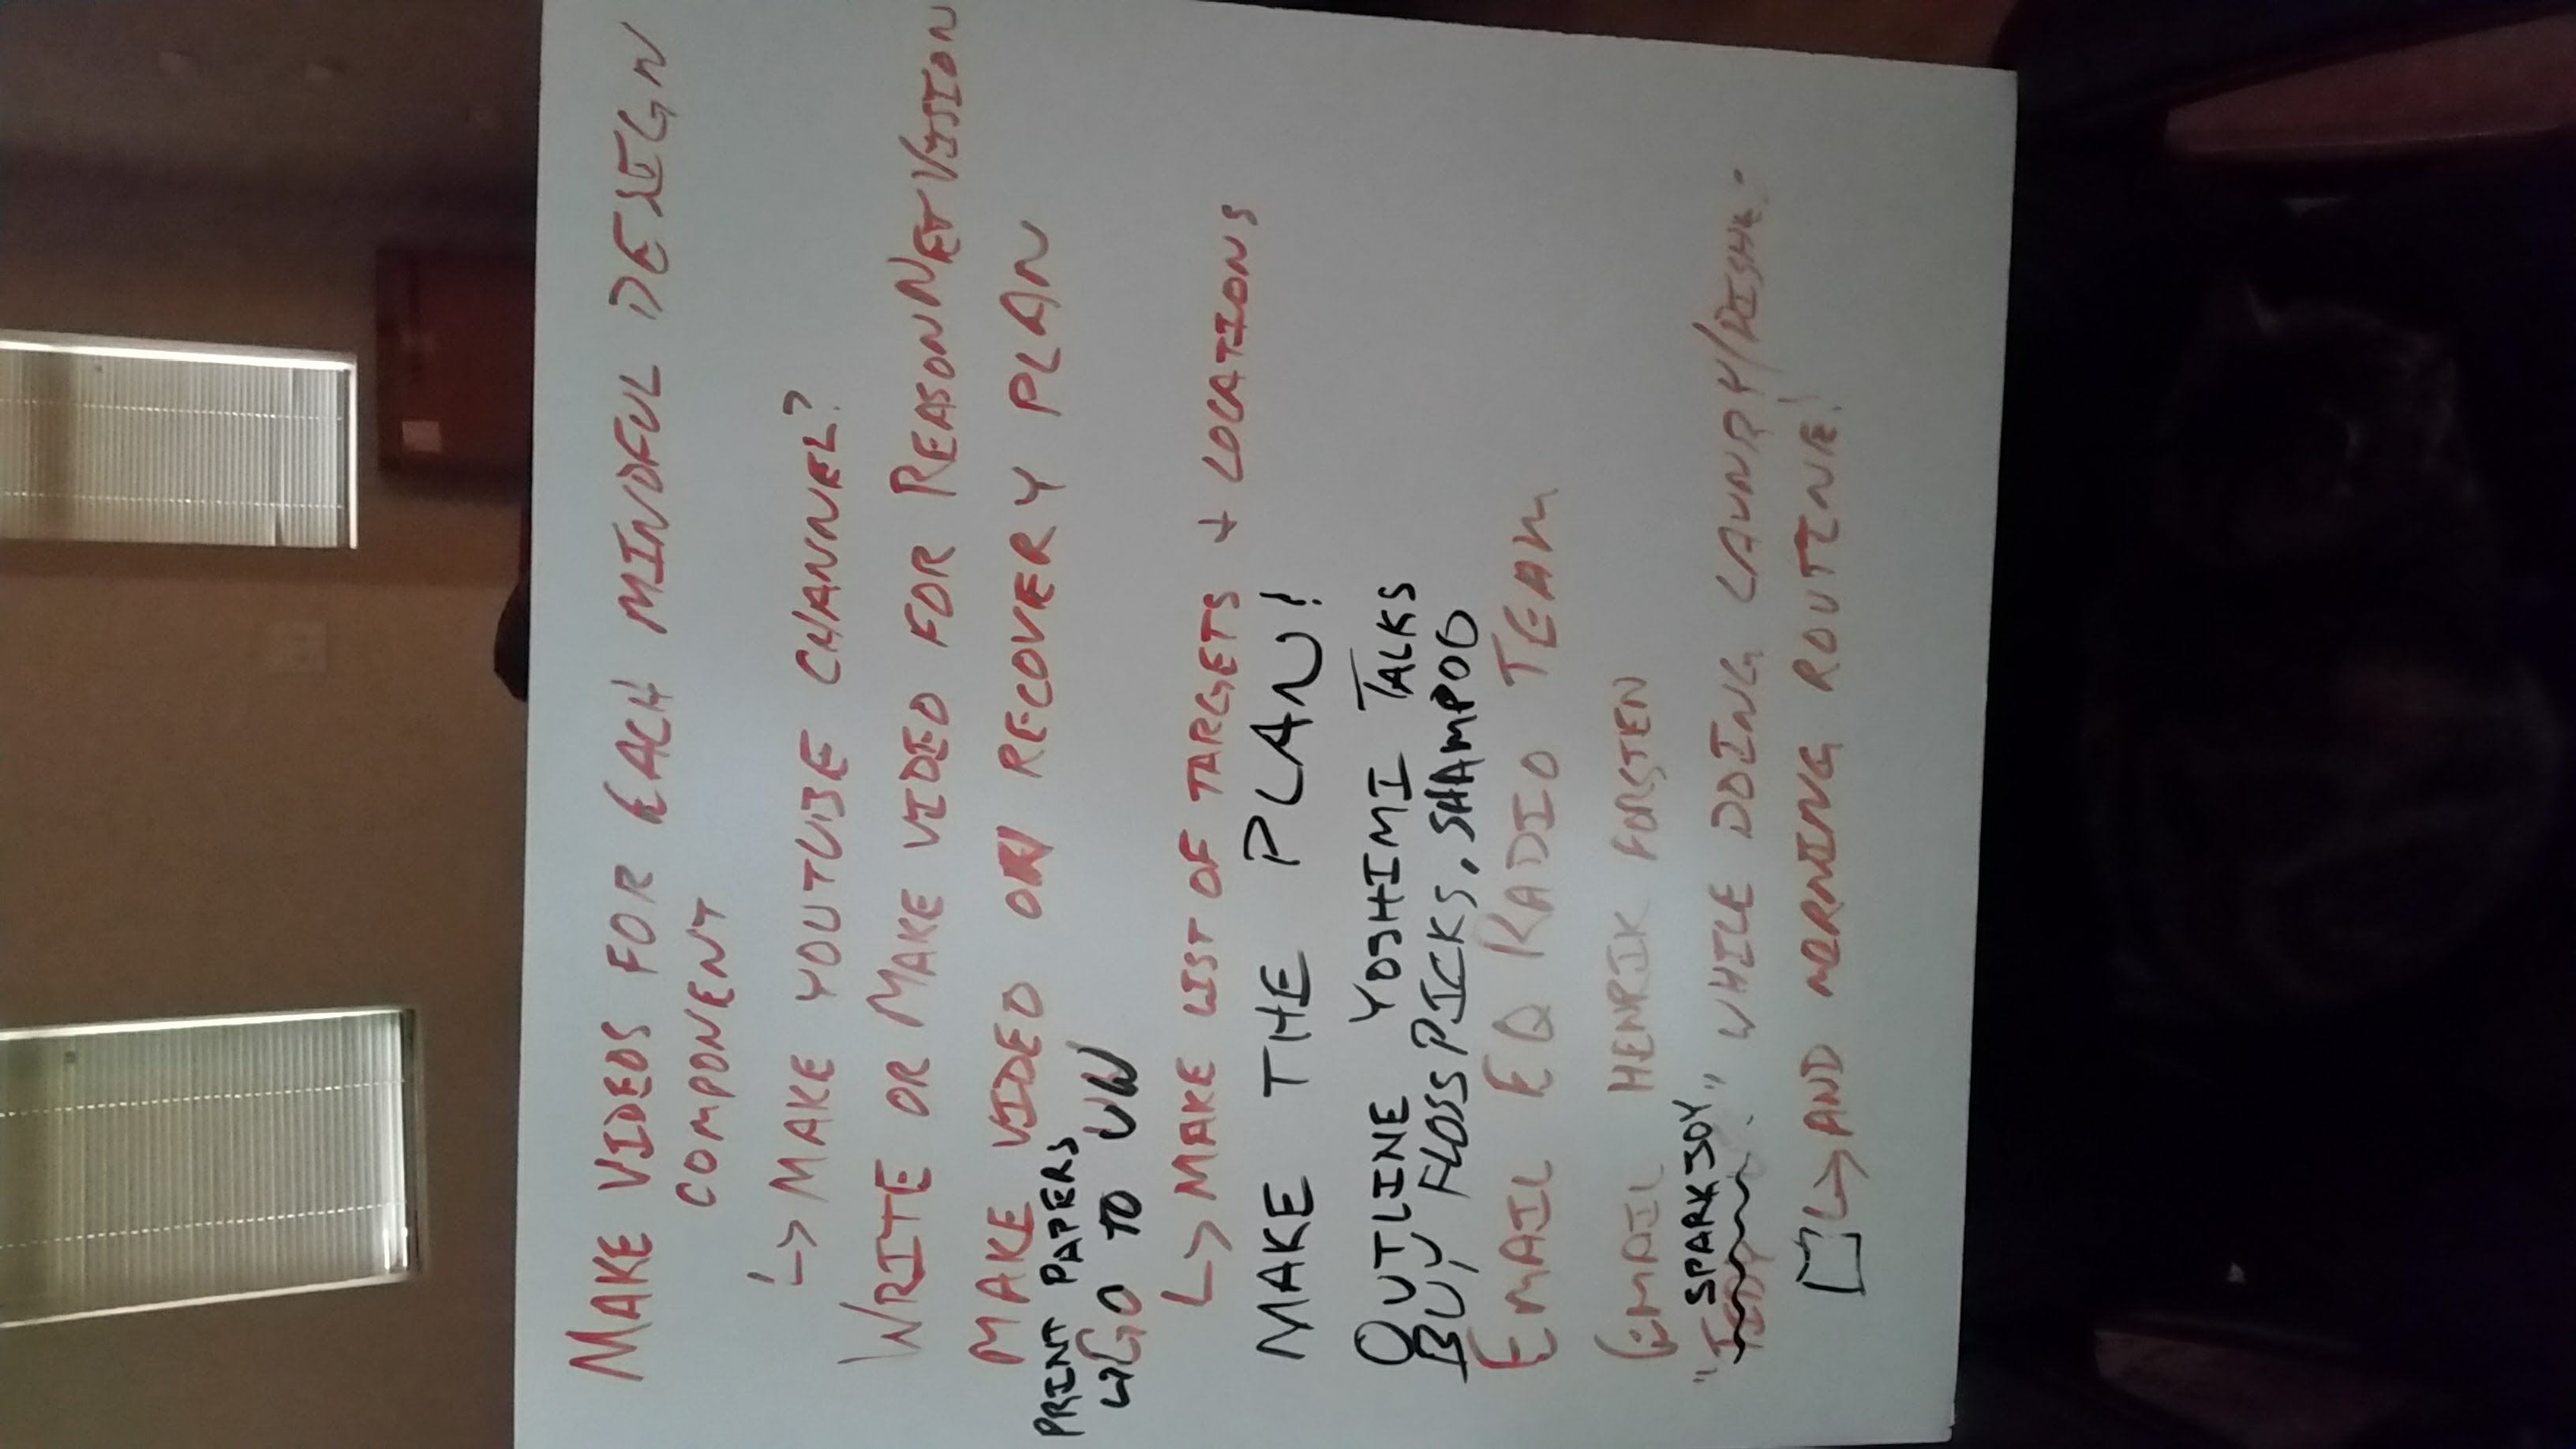 MAKE VIDEOS FOR EACH MINDFUL DESIGN
COMPONENT
↳ MAKE YOUTUBE CHANNEL?
WRITE OR MAKE VIDEO FOR REASONNET VISION
MAKE VIDEO ON RECOVERY PLAN
PRINT PAPERS
↳ GO TO UW
↳ MAKE LIST OF TARGETS + LOCATIONS
MAKE THE PLAN!
OUTLINE YOSHIMI TALKS
BUY FLOSS PICKS, SHAMPOO
EMAIL EQ RADIO TEAM
EMAIL HENRIK FORSTEN
"SPARK JOY"
TIDY WHILE DOING LAUNDRY/DISHES
↳ AND MORNING ROUTINE!